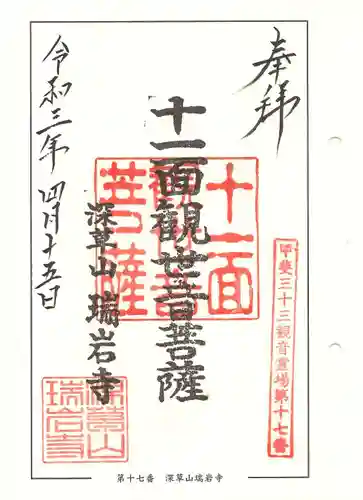 奉拝
甲斐三十三観音霊場第十七番
十一面観世音菩薩
十一面観音菩薩
深草山瑞岩寺
深草山瑞岩寺
令和三年四月十五日
第十七番 深草山瑞岩寺